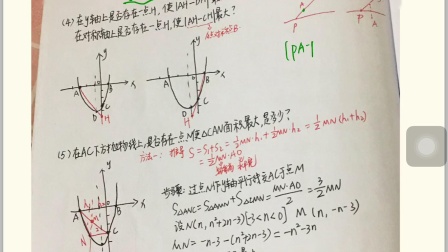 (4) 在y轴上是否存在一点H, 使|AH-DH|最大?
在对称轴上是否存在一点H, 使|AH-CH|最大?
[PA-P
(5) 在AC下方抛物线上,是否存在一点N,使△CAN面积最大,是多少?
方法一: S=S₁+S₂=½MN·h₁+½MN·h₂=½MN(h₁+h₂)
=½MN·AO
步骤: 过点N作y轴平行线交AC于点M
S△ANC=S△AMN+S△CMN=MN·AO/2=3/2MN
设N(n, n²+2n-3)(-3<n<0) M(n, -n-3)
MN=-n-3-(n²+2n-3)=-n²-3n